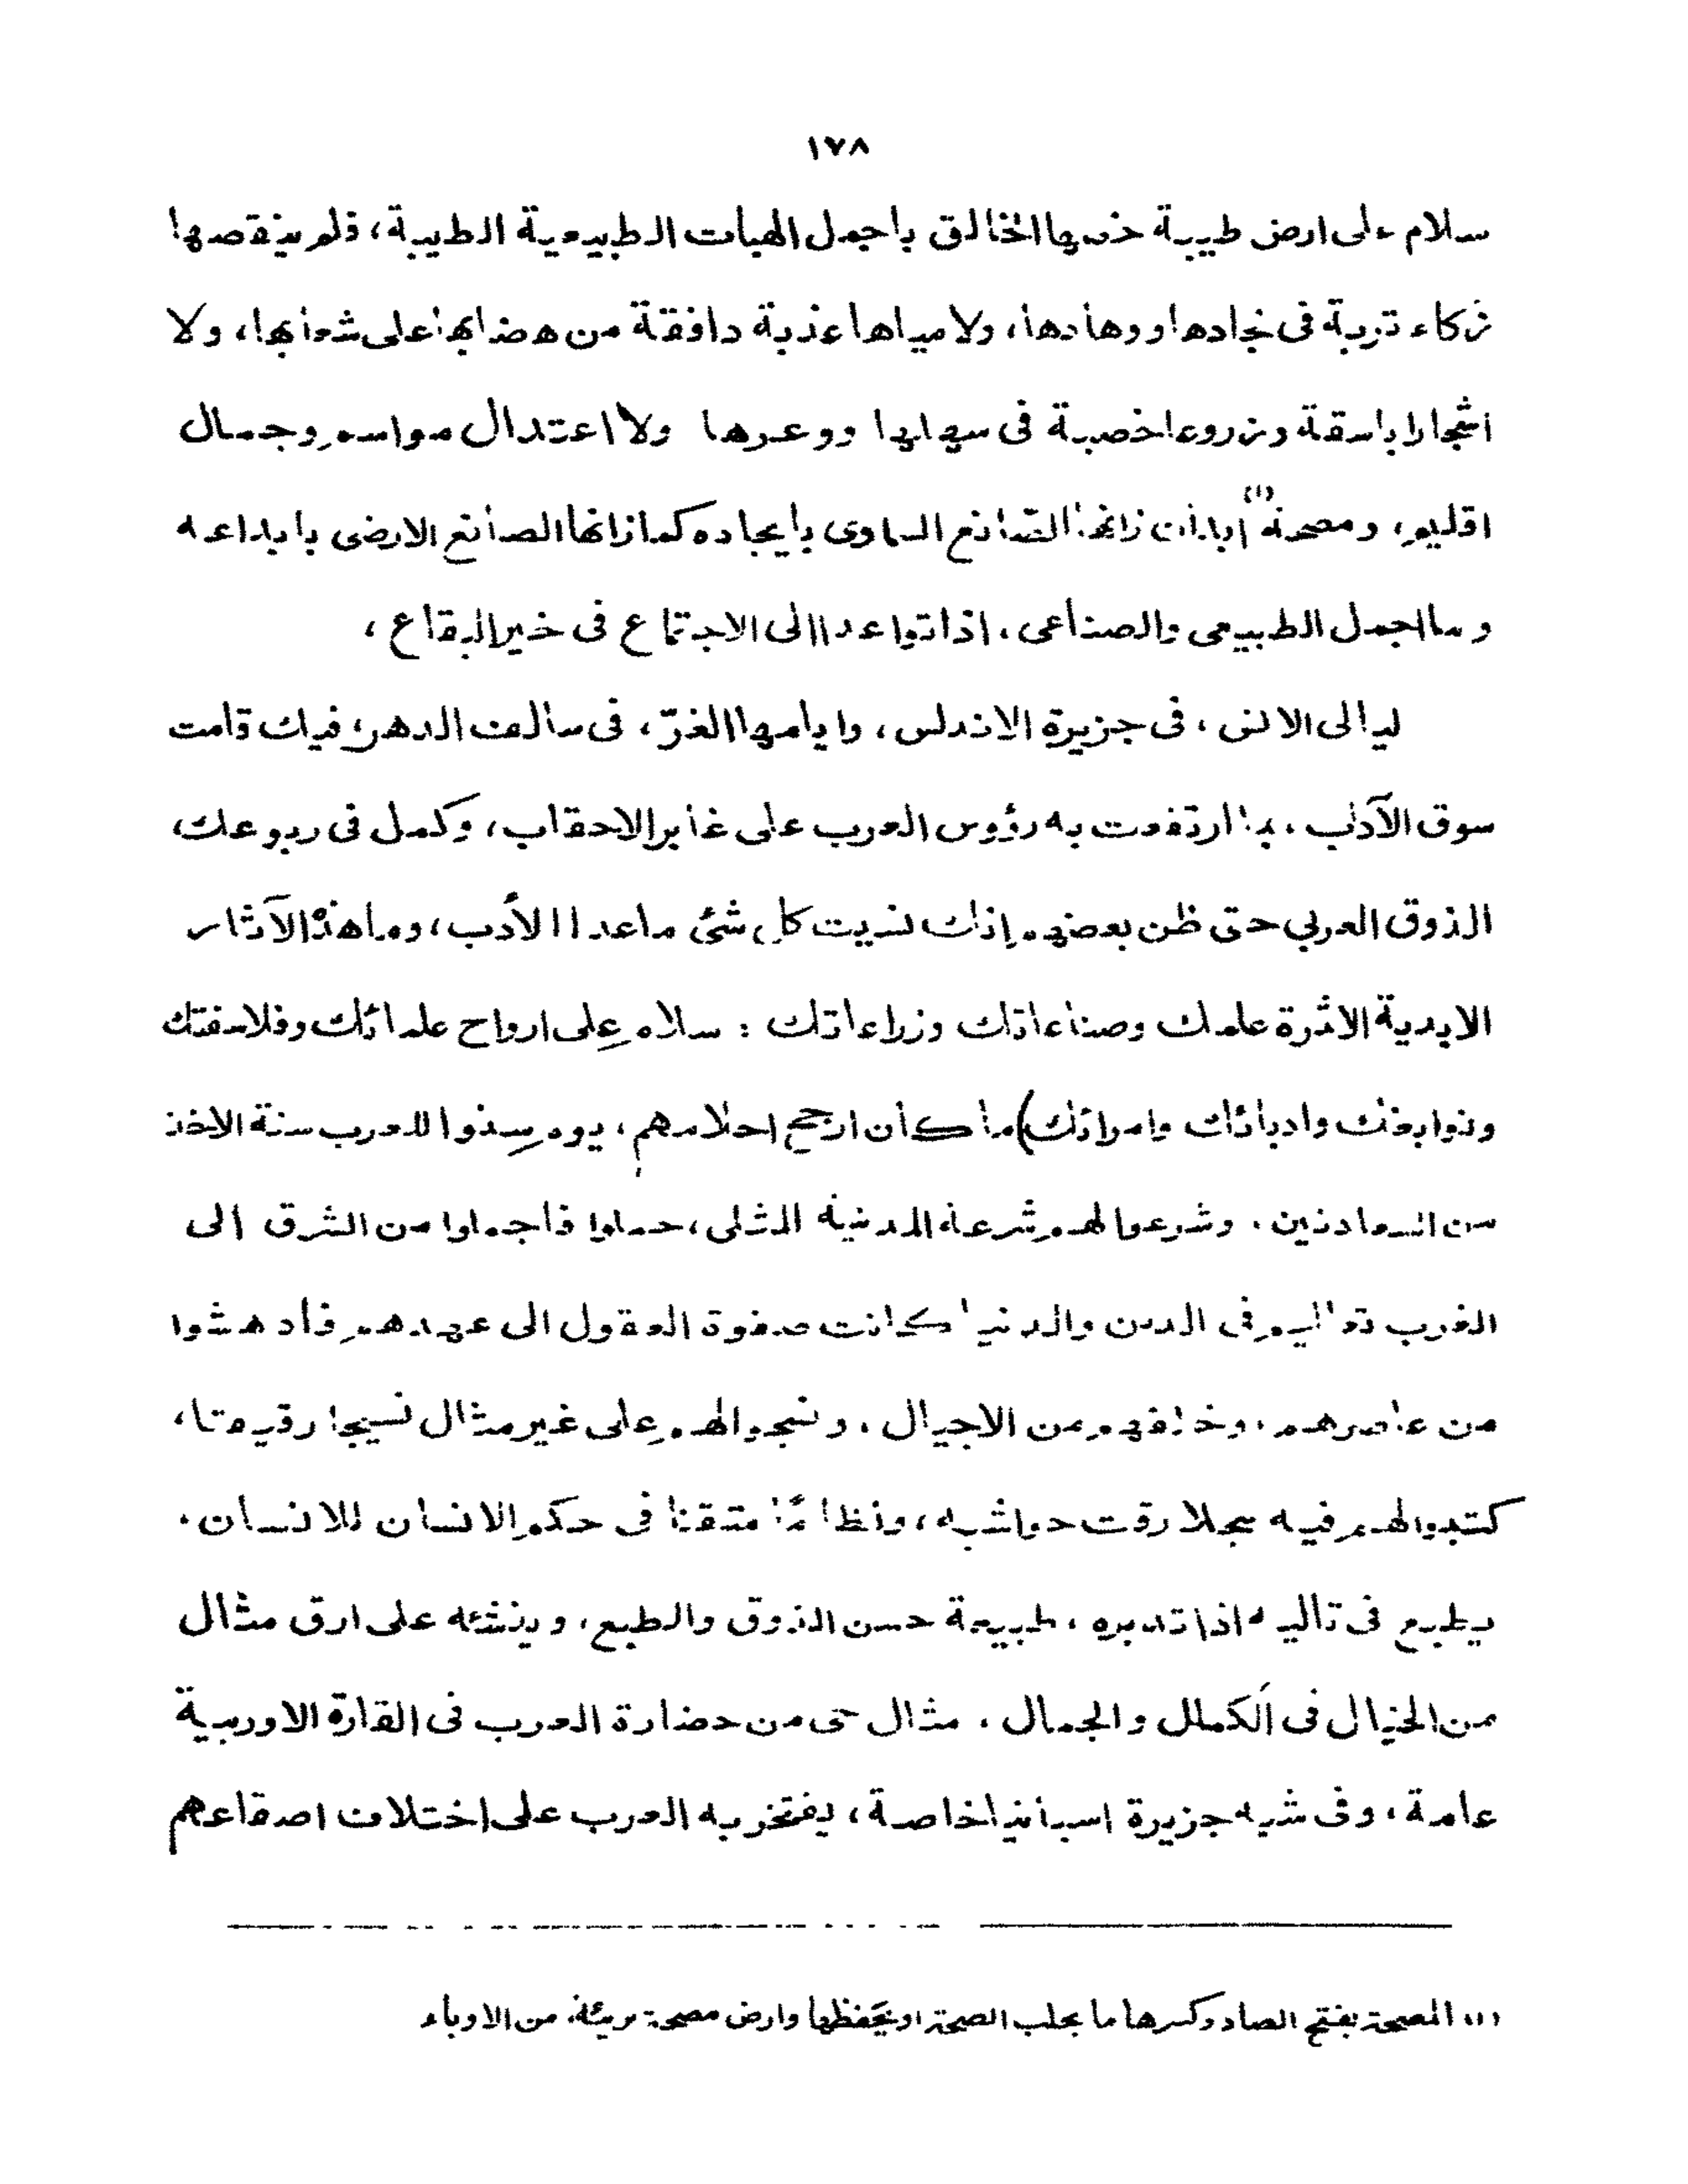 ١٧٨
سلام على ارض طيبة خصها الخالق باجمل الهبات الطبيعية الطيبة، فلم ينقصها
زكاء تربة فى نجادها ووهادها، ولا مياها عذبة دافقة من هضابها على شعابها، ولا
اشجارا باسقة وزروعا خصبة فى سهلها ووعرها ولا اعتدال مواسم وجمال
اقليم، ومصحة (١) ابدان زانها الصانع السماوى بايجاده كما زانها الصانع الارضى بابداعه
وما اجمل الطبيعى والصناعى، اذا تواعدا الى الاجتماع فى خير البقاع،
ليالى الانس، فى جزيرة الاندلس، وايامها الغرّ، فى سالف الدهر، فيك قامت
سوق الآداب، بما ارتفعت به رؤوس العرب على غابر الاحقاب، وكمل فى ربوعك
الذوق العربي حتى ظن بعضهم إنك نسيت كل شئ ماعدا الأدب، وما هذه الآثار
الابدية الاثمرة علمك وصناعاتك وزراعاتك : سلام على ارواح علمائك وفلاسفتك
ونوابغك وادبائك وامرائك) ما كان ارجح احلامهم، يوم سنوا للعرب سنة الاخذ
من السعادتين، وشرعوا لهم شرعة المدنية المثلى، حملوا فاجملوا من الشرق الى
الغرب تعاليم فى الدين والدنيا كانت صفوة العقول الى عهدهم فأدهشوا
من عاصرهم، وخلفهم من الاجيال، ونسجوا لهم على غير مثال نسيجا رقيمتا،
كتبوا لهم فيه سجلا رقت حواشيه، ونظامًا متقنا فى حكم الانسان للانسان،
يطبع فى تاليه اذا تدبره، طبيعة حسن الذوق والطبع، وينشئه على ارق مثال
من الخيال فى الكملل والجمال، مثال حى من حضارة العرب فى القارة الاوربية
عامة، وفى شبه جزيرة اسبانيا خاصة، يفتخر به العرب على اختلاف اصقاعهم
(١) المصحة بفتح الصاد وكسرها ما يجلب الصحة او يحفظها وارض مصحة بريئة من الاوباء